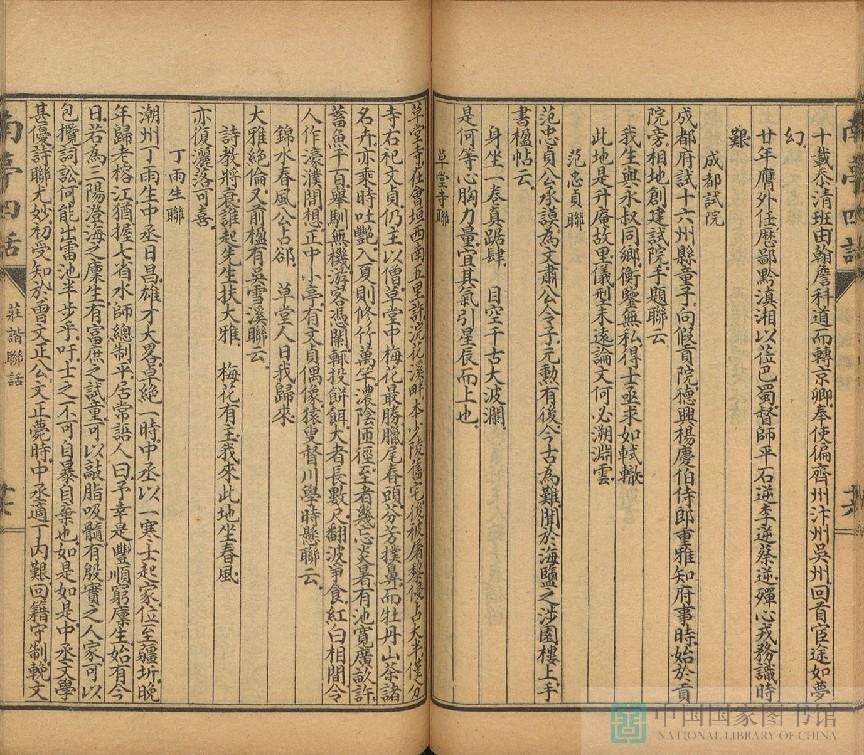 十載忝清班由翰詹科道而轉京卿奉使偏齊州汴州吳州回首宦途如夢
幻
廿年膺外任歷鄙黔滇湘以莅巴蜀督師平石逆李逆蔡逆殫心戎務識時
艱
成都試院
成都府試十六州縣童子向假貢院德興楊慶伯侍郎重雅知府事時始於貢
院旁相地創建試院手題聯云
我生與永叔同鄉衡鑒無私得士亟求如軾轍
此地是升庵故里儀型未遠論文何必溯淵雲
范忠貞聯
范忠貞公承謨為文肅公令子元勳有後今古為難聞於海鹽之涉園樓上手
書楹帖云
身坐一卷真踞肆　目空千古大波瀾
是何等心胸力量宜其氣引星辰而上也
草堂寺聯
草堂寺在會垣西南五里許浣花溪畔本少陵舊宅後被屠黎侵占大半僅
寺右祀文貞仍主以僧草堂中梅花最勝臘尾春頭芬芳撲鼻而牡丹山茶諸
名卉亦乘時吐艷入夏則修竹萬竿濃陰匝徑至者幾忘炎暑有池寬廣畝許
蓄魚千百舉馴無機游客憑闌輒投餅餌大者長數尺翻波爭食紅白相間令
人作濠濮間想正中小亭有文貞偶像猿叟督川學時懸聯云
錦水春風公占卻　草堂人日我歸來
大雅絕倫又前楹有吳雪溪聯云
詩教將衰誰起先生扶大雅　梅花有主我來此地坐春風
亦復灑落可喜
丁雨生聯
潮州丁雨生中丞日昌雄才大畧卓絕一時中丞以一寒士起家位至疆圻晚
年歸老榕江猶握七省水師總制平居常語人曰予幸是豐順窮廩生始有今
日若為三陽澄海之廩生有富庶之試童可以敲脂吸髓有殷實之人家可以
包攬詞訟何能出雷池半步乎吁士之不可自暴自棄也如是如是中丞文學
甚優詩聯尤妙初受知於曾文正公文正薨時中丞適丁內艱回籍守制輓文
南亭四話
莊諧聯話
中国国家图书馆
NATIONAL LIBRARY OF CHINA